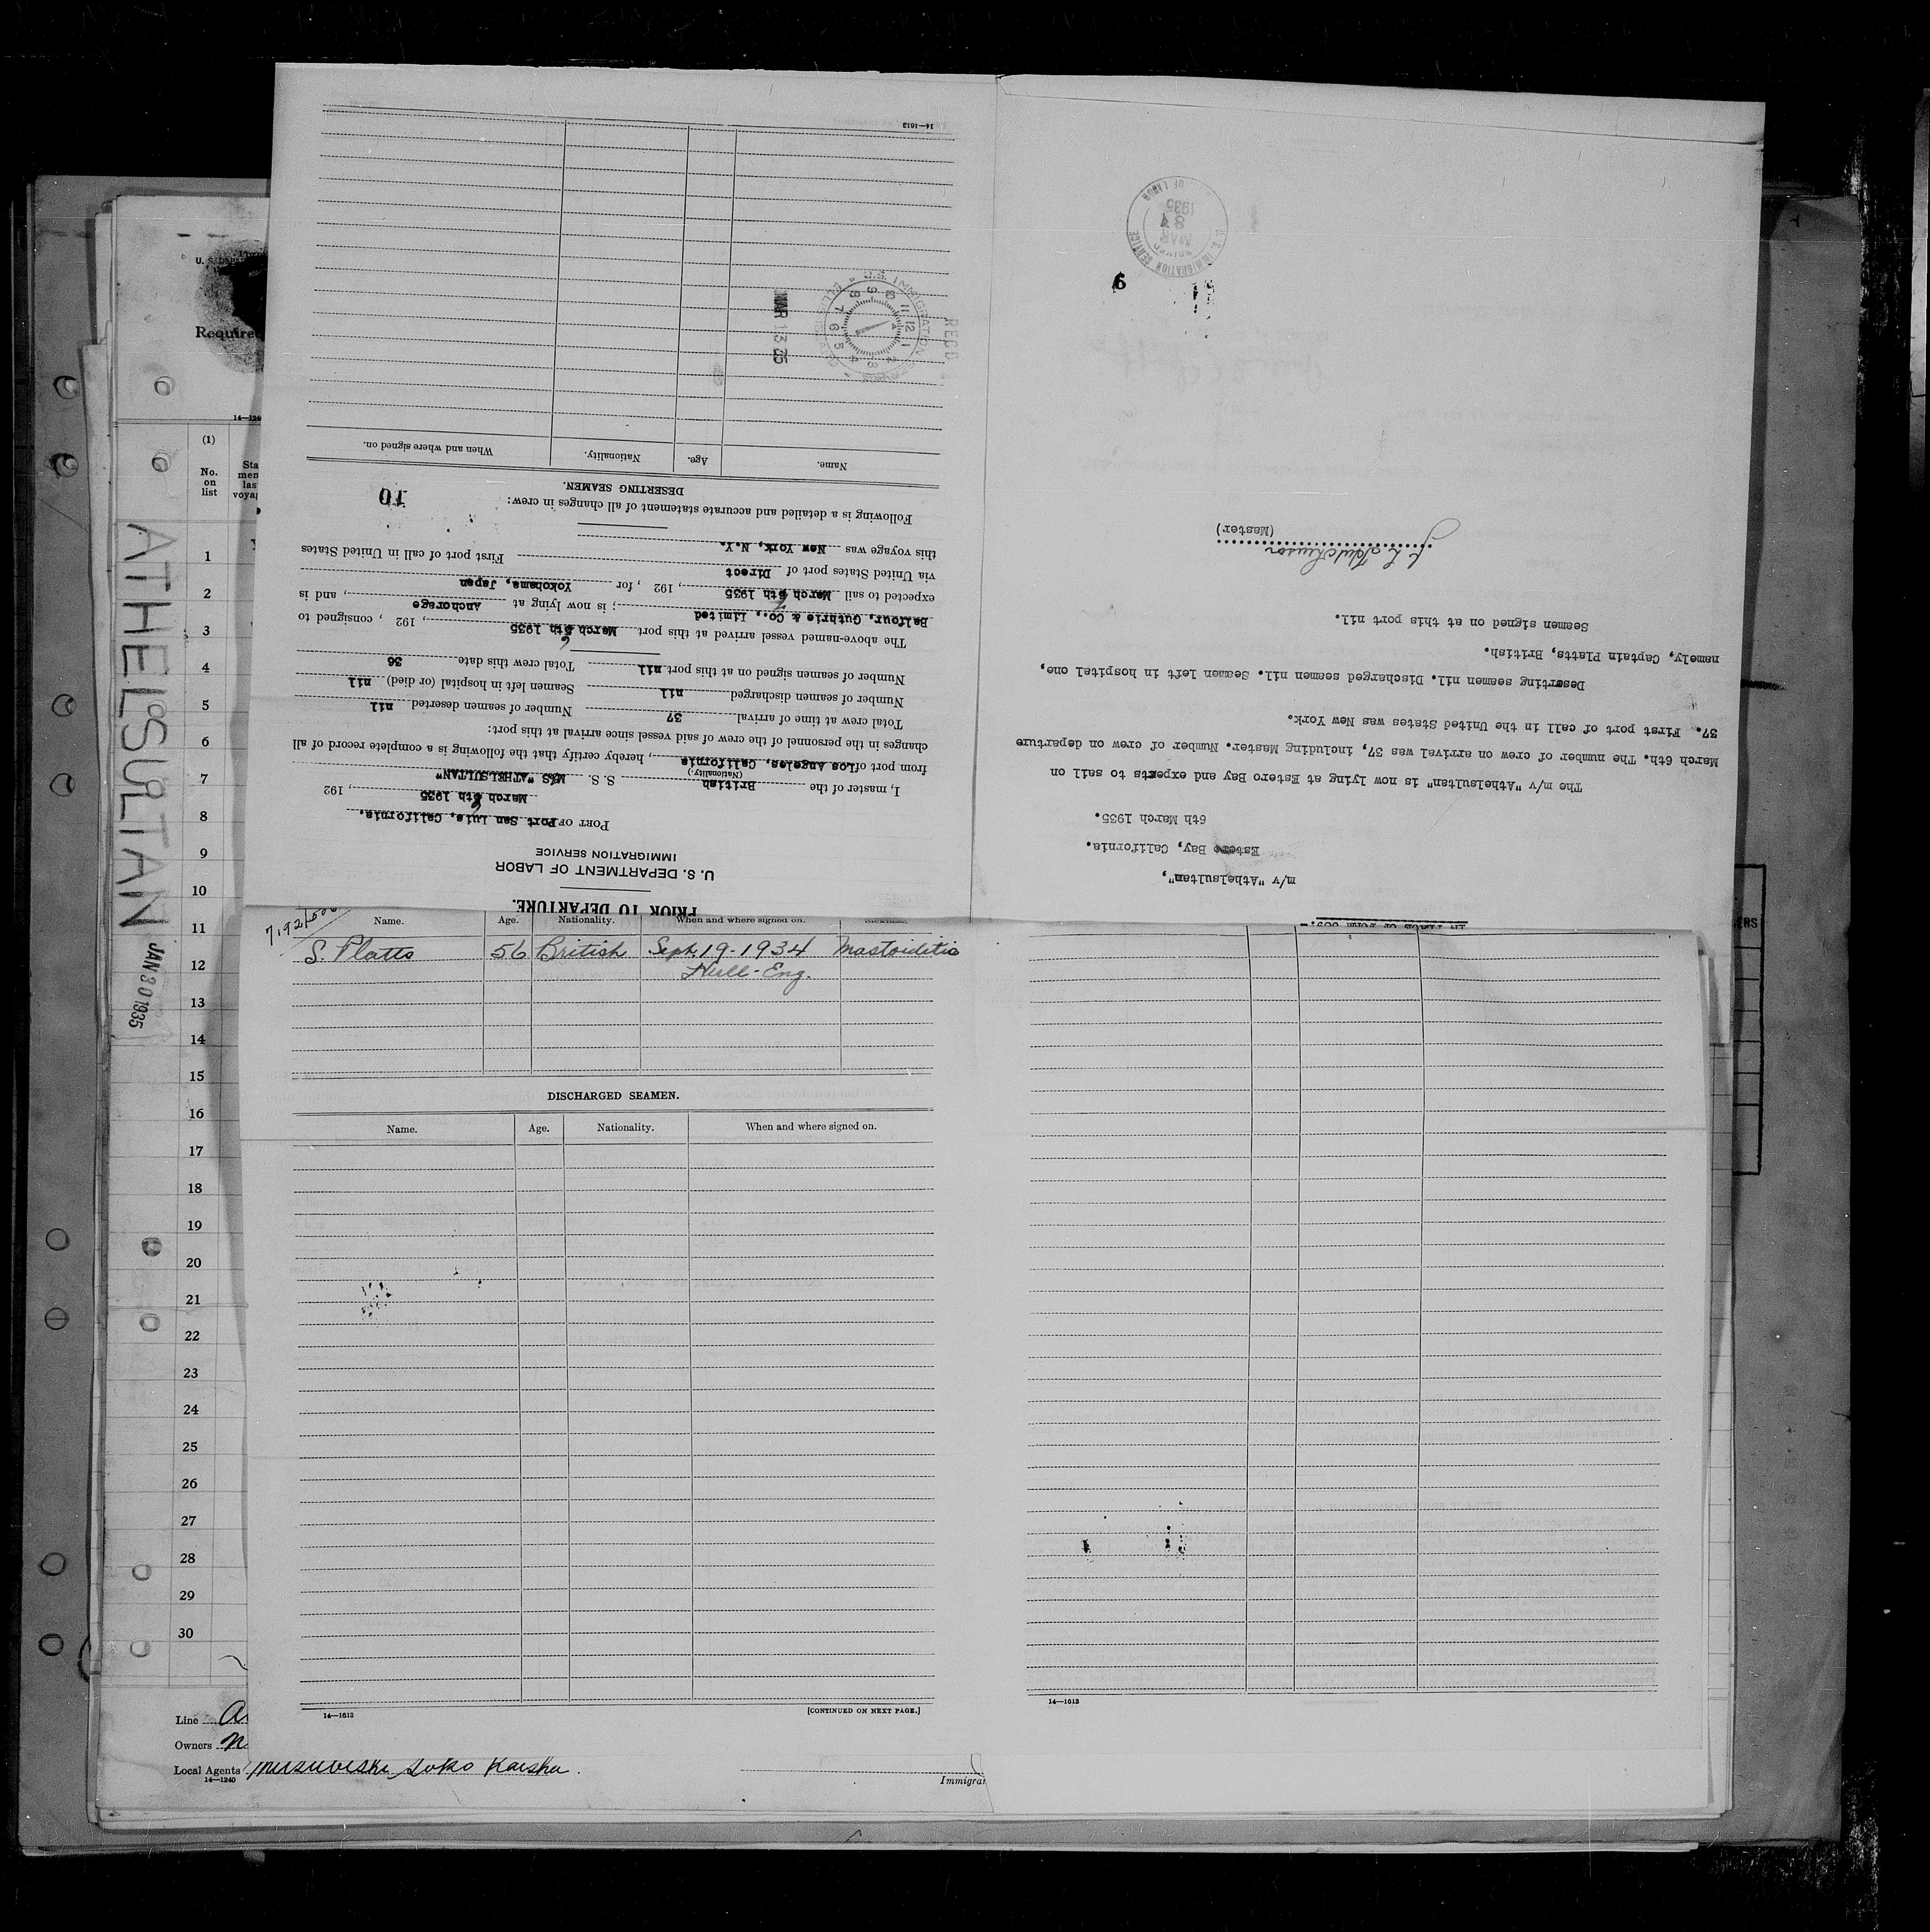 U. S.
Require
14—1240
(1)
No.
on
list
1
2
3
4
5
6
7
8
9
10
11
12
13
14
15
16
17
18
19
20
21
22
23
24
25
26
27
28
29
30
ATHELSULTAN
JAN 30 1935
Line
Owners
Local Agents
14—1240
Soko Kaisha.
Immigra
PRIOR TO DEPARTURE.
U. S. DEPARTMENT OF LABOR
IMMIGRATION SERVICE
PORT OF Port San Luis, California.
March 6th 1935, 192
I, master of the British S. S. M/S "ATHELSULTAN"
(Nationality.)
from port of Los Angeles, California, hereby certify that the following is a complete record of all
changes in the personnel of the crew of said vessel since arrival at this port:
Total crew at time of arrival 37 Number of seamen deserted nil
Number of seamen discharged nil Seamen left in hospital (or died) nil
Number of seamen signed on at this port nil Total crew this date 36
The above-named vessel arrived at this port March 6th 1935, 192 , consigned to
Balfour, Guthrie & Co., Limited; is now lying at Anchorage, and is
expected to sail March 6th 1935, 192 , for Yokohama, Japan
via United States port of Direct
First port of call in United States
this voyage was New York, N.Y.
Following is a detailed and accurate statement of all changes in crew:
10
DESERTING SEAMEN.
Name. Age. Nationality. When and where signed on.
REC'D
U.S. IMMIGRATION
MAR 13 35
14—1613
IN PLACE OF FORM 689.-
m/v "Athelsultan",
Estero Bay, California.
6th March 1935.
The m/v "Athelsultan" is now lying at Estero Bay and expects to sail on
March 6th. The number of crew on arrival was 37, including Master. Number of crew on departure
37. First port of call in the United States was New York.
Deserting seamen nil. Discharged seamen nil. Seamen left in hospital one,
namely, Captain Platts, British.
Seamen signed on at this port nil.
(Master)
6
U. S. IMMIGRATION SERVICE
MAR
8
1935
OF LABOR
Name. Age. Nationality. When and where signed on. Sickness.
S. Platts 56 British Sept. 19-1934 Mastoiditis
Hull-Eng.
DISCHARGED SEAMEN.
Name. Age. Nationality. When and where signed on.
14—1613
[CONTINUED ON NEXT PAGE.]
14—1613
ERS